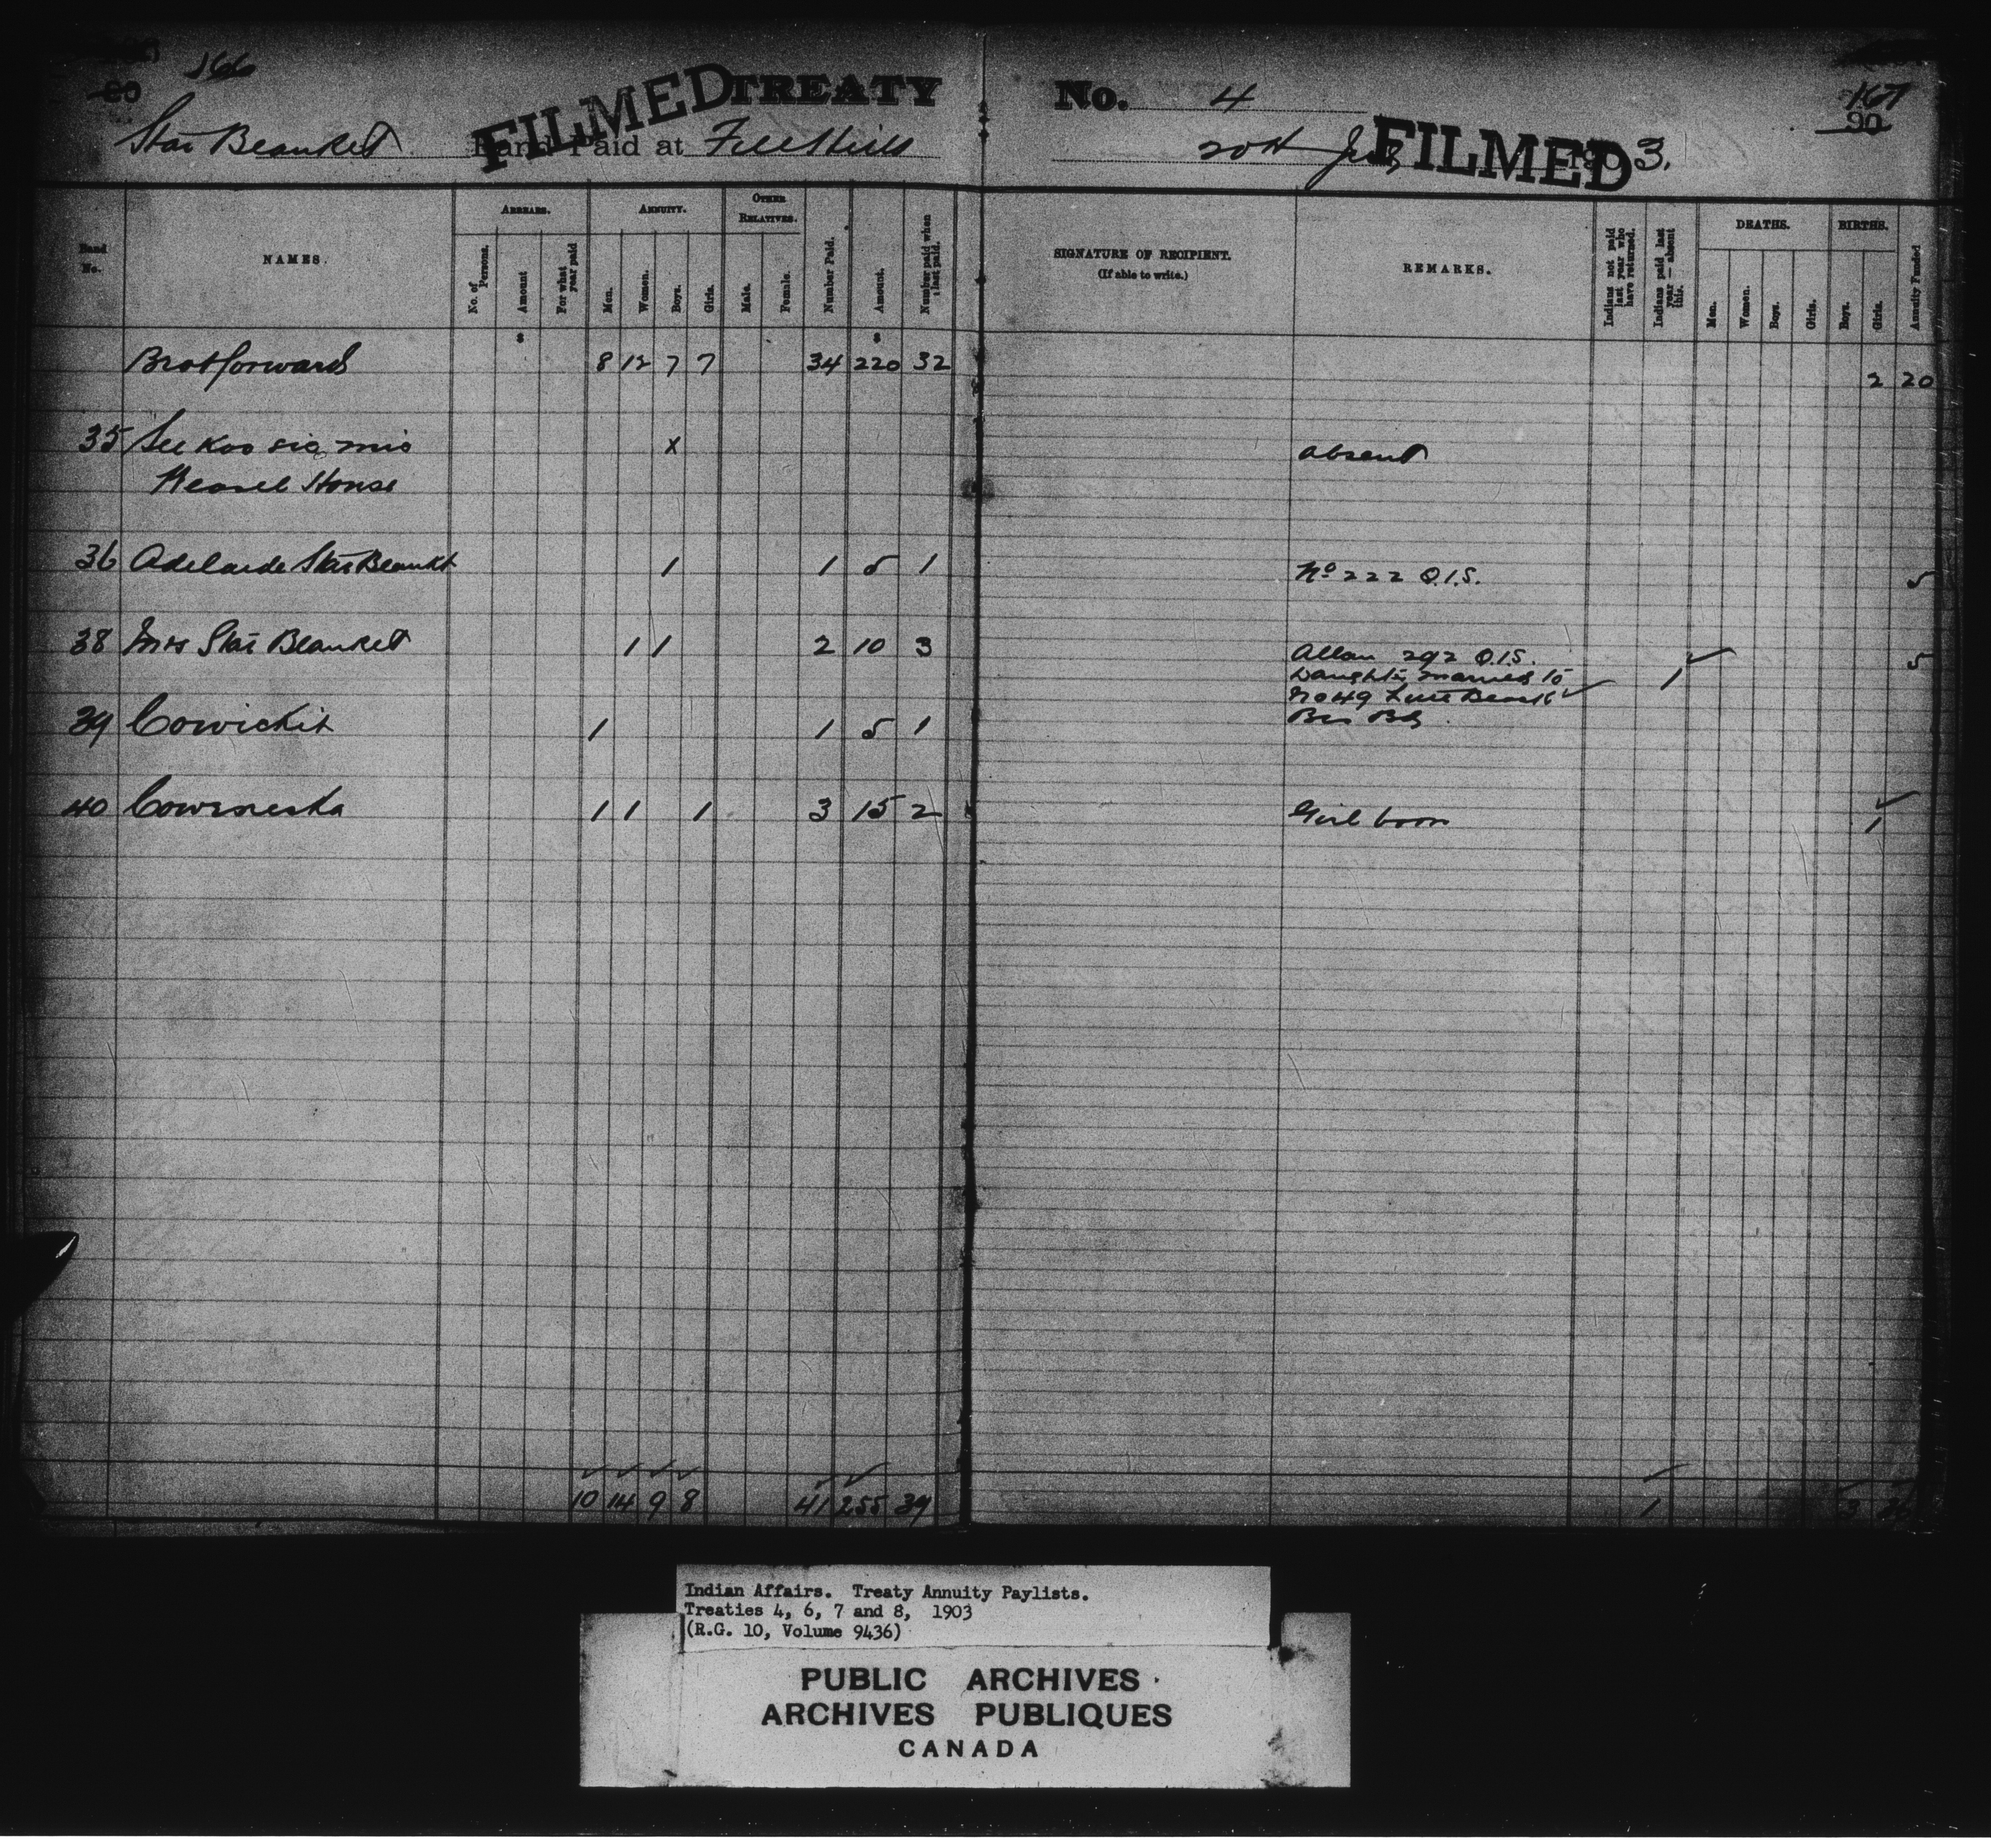 166
80
FILMED TREATY No. 4
167
90
Star Blanket Band Paid at File Hills 20th July FILMED 1903.
Band No.
NAMES.
ARREARS.
No. of Persons.
Amount
For what year paid
ANNUITY.
Men.
Women.
Boys.
Girls.
OTHER RELATIVES.
Male.
Female.
Number Paid.
Amount.
Number paid when last paid.
SIGNATURE OF RECIPIENT.
(If able to write.)
REMARKS.
Indians not paid last year who have returned.
Indians paid last year — absent this.
DEATHS.
Men.
Women.
Boys.
Girls.
BIRTHS.
Boys.
Girls.
Annuity Funded
$ $
Brot forward 8 12 7 7 34 220 32 2 20
35 See koo sis mis x absent
Weasel House
36 Adelaide Star Blankt 1 1 5 1 No 222 Q.I.S. 5
38 Mrs Star Blanket 1 1 2 10 3 Allan 292 Q.I.S. 1 5
Daughter married to
No 49 Little Black
39 Cowickit 1 1 5 1
40 Cowineska 1 1 1 3 15 2 Girl born 1
10 14 9 8 41 255 39 1 3
Indian Affairs. Treaty Annuity Paylists.
Treaties 4, 6, 7 and 8, 1903
(R.G. 10, Volume 9436)
PUBLIC ARCHIVES
ARCHIVES PUBLIQUES
CANADA